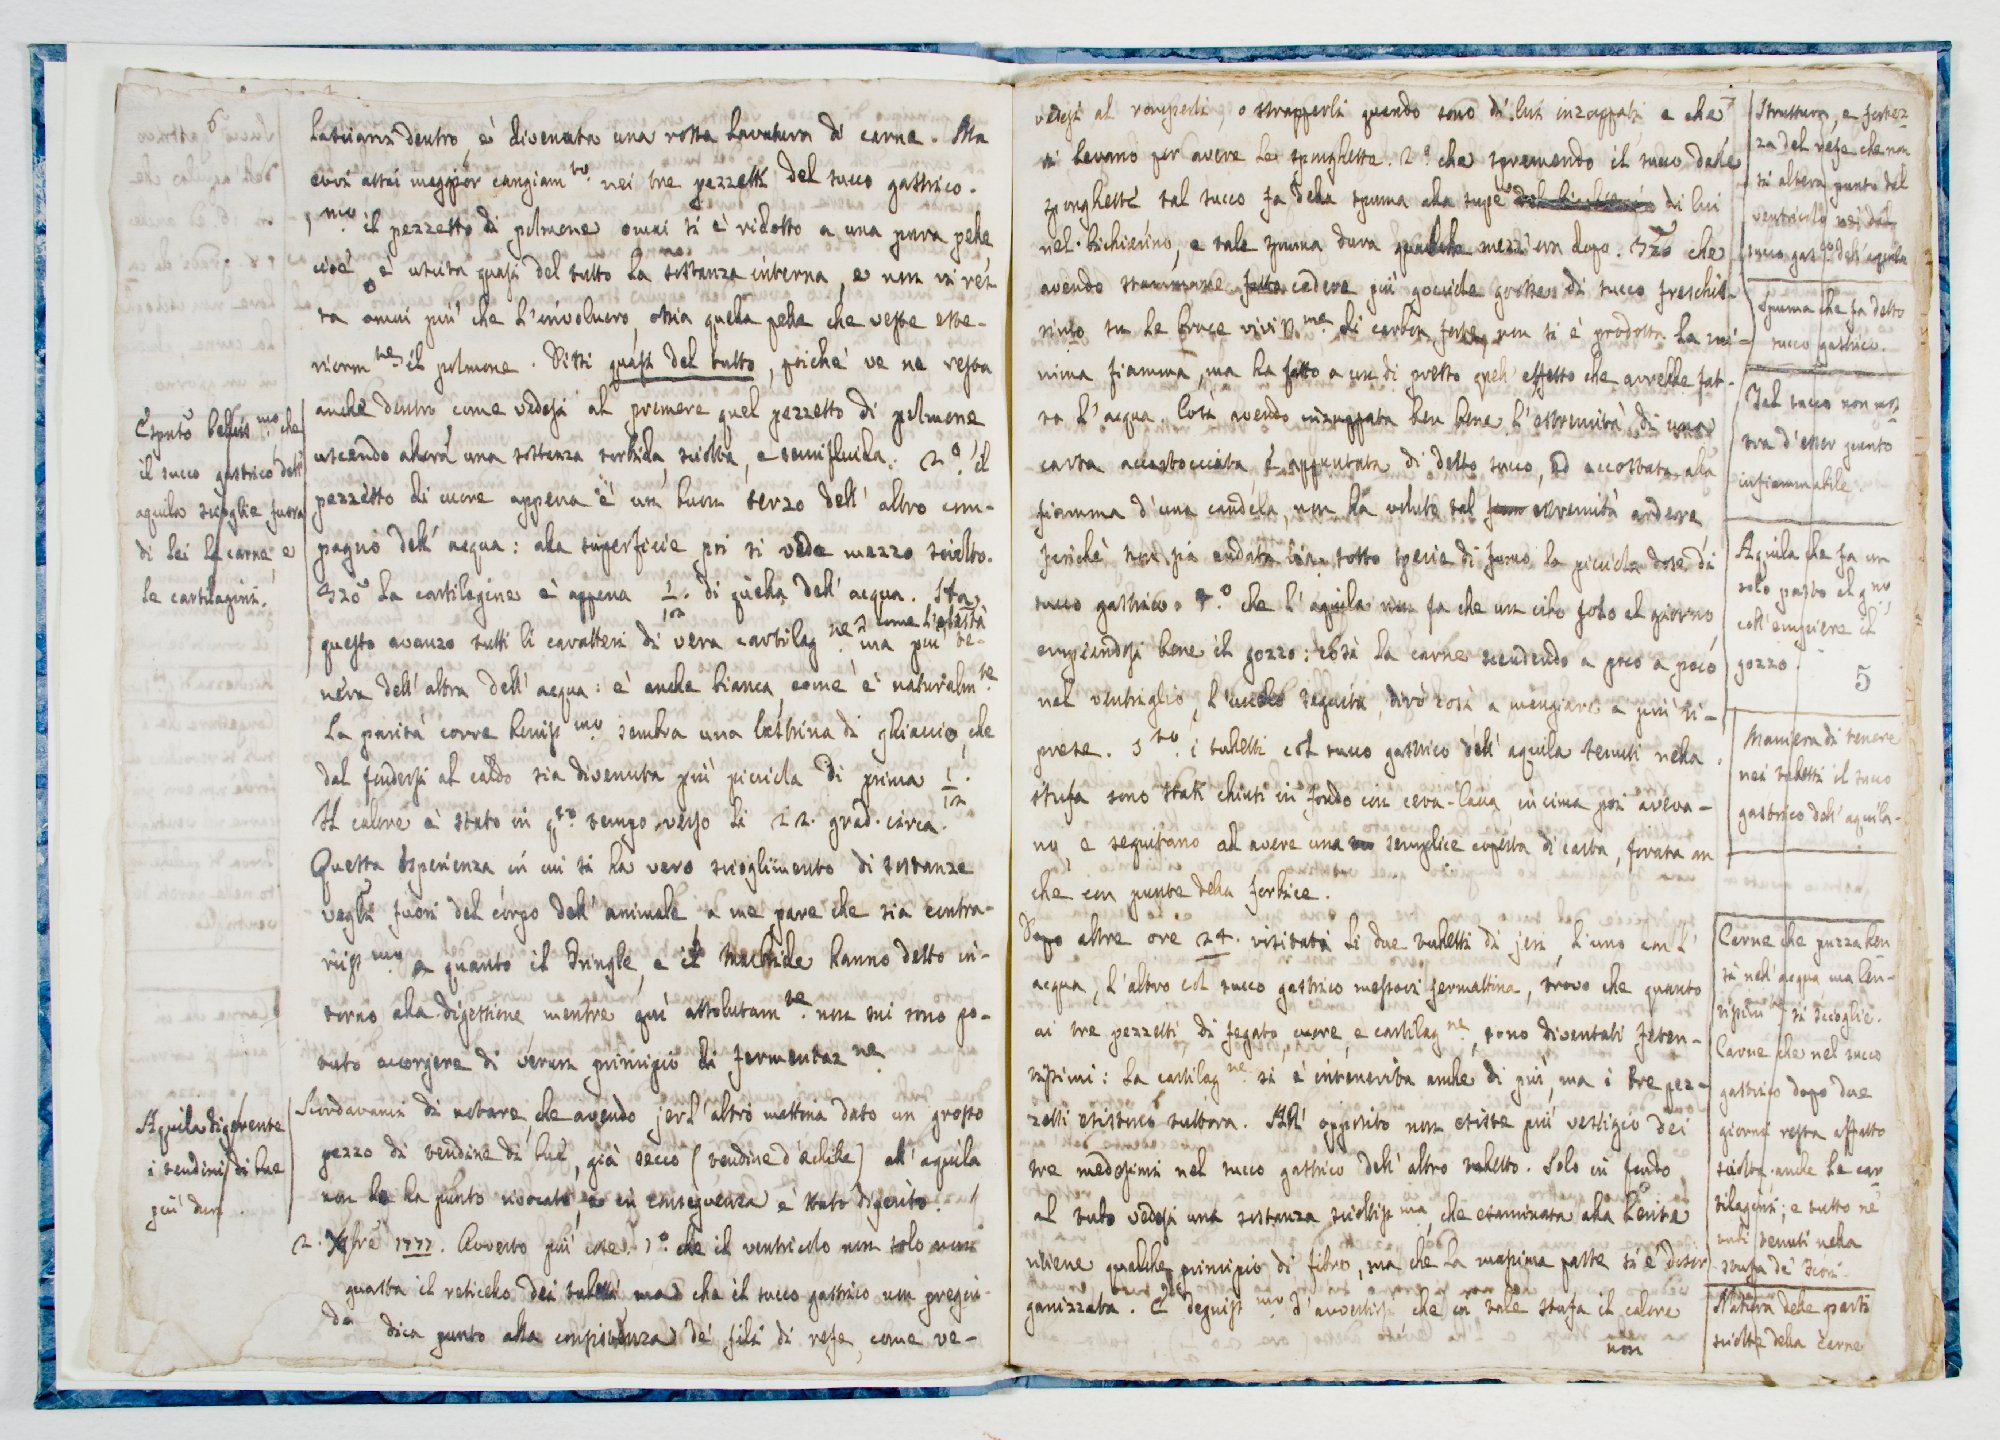 6
lasciarvi dentro, è divenuta una rossa lavatura di carne. Ma
evvi altri maggior cangiam.to nei tre pezzetti del succo gastrico.
1.mo il pezzetto di polmone omai si è ridotto a una pura pelle,
cioè è uscita quasi del tutto la sostanza interna, e non vi res-
ta omai più che l'involucro, ossia quella pelle che veste este-
riorm.te il polmone. Dissi quasi del tutto, poichè ve ne resta
anche dentro come vedesi al premere quel pezzetto di polmone
uscendo allora una sostanza torbida, sciolta, e semifluida. 2.o il
pezzetto di cuore appena è un buon terzo dell' altro com-
pagno dell' acqua: alla superficie poi si vede mezzo sciolto.
3.zo La cartilagine è appena 1/12. di quella dell' acqua. Ha
questo avanzo tutti li caratteri di vera cartilag.ne come l'elasticità
ma più te-
nera dell' altra dell' acqua: è anche bianca, come è naturalm.te
La parità corre beniss.mo sembra una lastrina di ghiaccio, che
dal fondersi al caldo sia divenuta più piccola di prima 1/12.
Il calore è stato in q.to tempo verso li 22. grad. circa.
Questa esperienza in cui si ha vero scioglimento di sostanze
vegli fuori del corpo dell' animale a me pare che sia contra-
riiss.ma a quanto il Pringle, e il Macbride hanno detto in-
torno alla digestione, mentre qui assolutam.te non mi sono po-
tuto accorgere di verun principio di fermentaz.ne
Scordavami di notare, che avendo jerl' altro mattina dato un grosso
pezzo di tendine di bue, già secco (tendine d'Achille) all' aquila
non lo ha punto rivocato, e in conseguenza è stato digerito.
2. Xbre 1777. Avverto più cose. 1.o che il ventricolo non solo non
guasta il reticello dei tubetti, ma che il succo gastrico non pregiu-
dica punto alla consistenza de' fili di refe, come ve-
Esputo belliss.mo che
il succo gastrico dell'
aquila scioglie fuora
di lei la carne, e
le cartilagini.
Aquila digerente
i tendini di bue
più duri.
desi al romperli, o strapperli quando sono di lui inzuppati e che
si levano per avere le spughette. 2.o che spremendo il succo dalle
sponghette tal succo fa della spuma alla supe di lui
nel bichierino, e tale spuma dura qualche mezz' ora dopo. 3.zo che
avendo stammane fatto cadere più gocciole grosse di succo freschis-
simo su le brace viviss.me di carbon forte, non si è prodotta la mi-
nima fiamma, ma ha fatto a un di presso quell' effetto che avrebbe fat-
to l'acqua. Così avendo inzuppata ben bene l'estremità di una
carta accartocciata, e appuntata di detto succo, ed accostata alla
fiamma d'una candela, non ha voluto tal estremità ardere
finchè non sia andata via sotto specie di fumo la piccola dose di
succo gastrico. 4.o che l'aquila non fa che un cibo solo al giorno,
empiendosi bene il gozzo: così la carne scendendo a poco a poco
nel ventriglio, l'uccello seguita, dirò così a mangiare a più ri-
prese. 5.to i tubetti col succo gastrico dell' aquila tenuti nella
stufa sono stati chiusi in fondo con cera-lacca in cima poi aveva-
no, e seguitano ad avere una semplice coperta di carta, forata an
che con punte della forbice.
Dopo altre ore 24. visitati li due tubetti di jeri, l'uno con l'
acqua, l'altro col succo gastrico messovi jermattina, trovo che quanto
ai tre pezzetti, di fegato, cuore, e cartilag.ne, sono diventati feten-
tissimi: la cartilag.ne si è intenerita anche di più, ma i tre pez-
zetti esistono tuttora. All' opposito non esiste più vestigio dei
tre medesimi nel succo gastrico dell' altro tubetto. Solo in fondo
al tubo vedesi una sostanza scioltiss.ma, che esaminata alla lente
ritiene qualche principio di fibre, ma che la massima parte si è disor
ganizzata. È degniss.mo d'avvertirsi che in tale stufa il calore
non
Struttura, e fortez-
za del refe che non
si altera punto dal
ventricolo nei dal
succo gas.co dell' aquila
Spuma che fa detto
succo gastrico.
Tal succo non mos-
tra d'esser punto
infiammabile.
Aquila che fa un
solo pasto al g.no,
coll' empiere il
gozzo.
5
Maniera di tenere
nei tubetti il succo
gastrico dell' aquila.
Carne che puzza ben
sì nell' acqua ma len-
tissim.te si scioglie.
Carne che nel succo
gastrico dopo due
giorni resta affatto
sciolta, anche le car
tilagini; e tutto ne
tubi tenuti nella
stufa de' fiori.
Natura delle parti
sciolte della carne